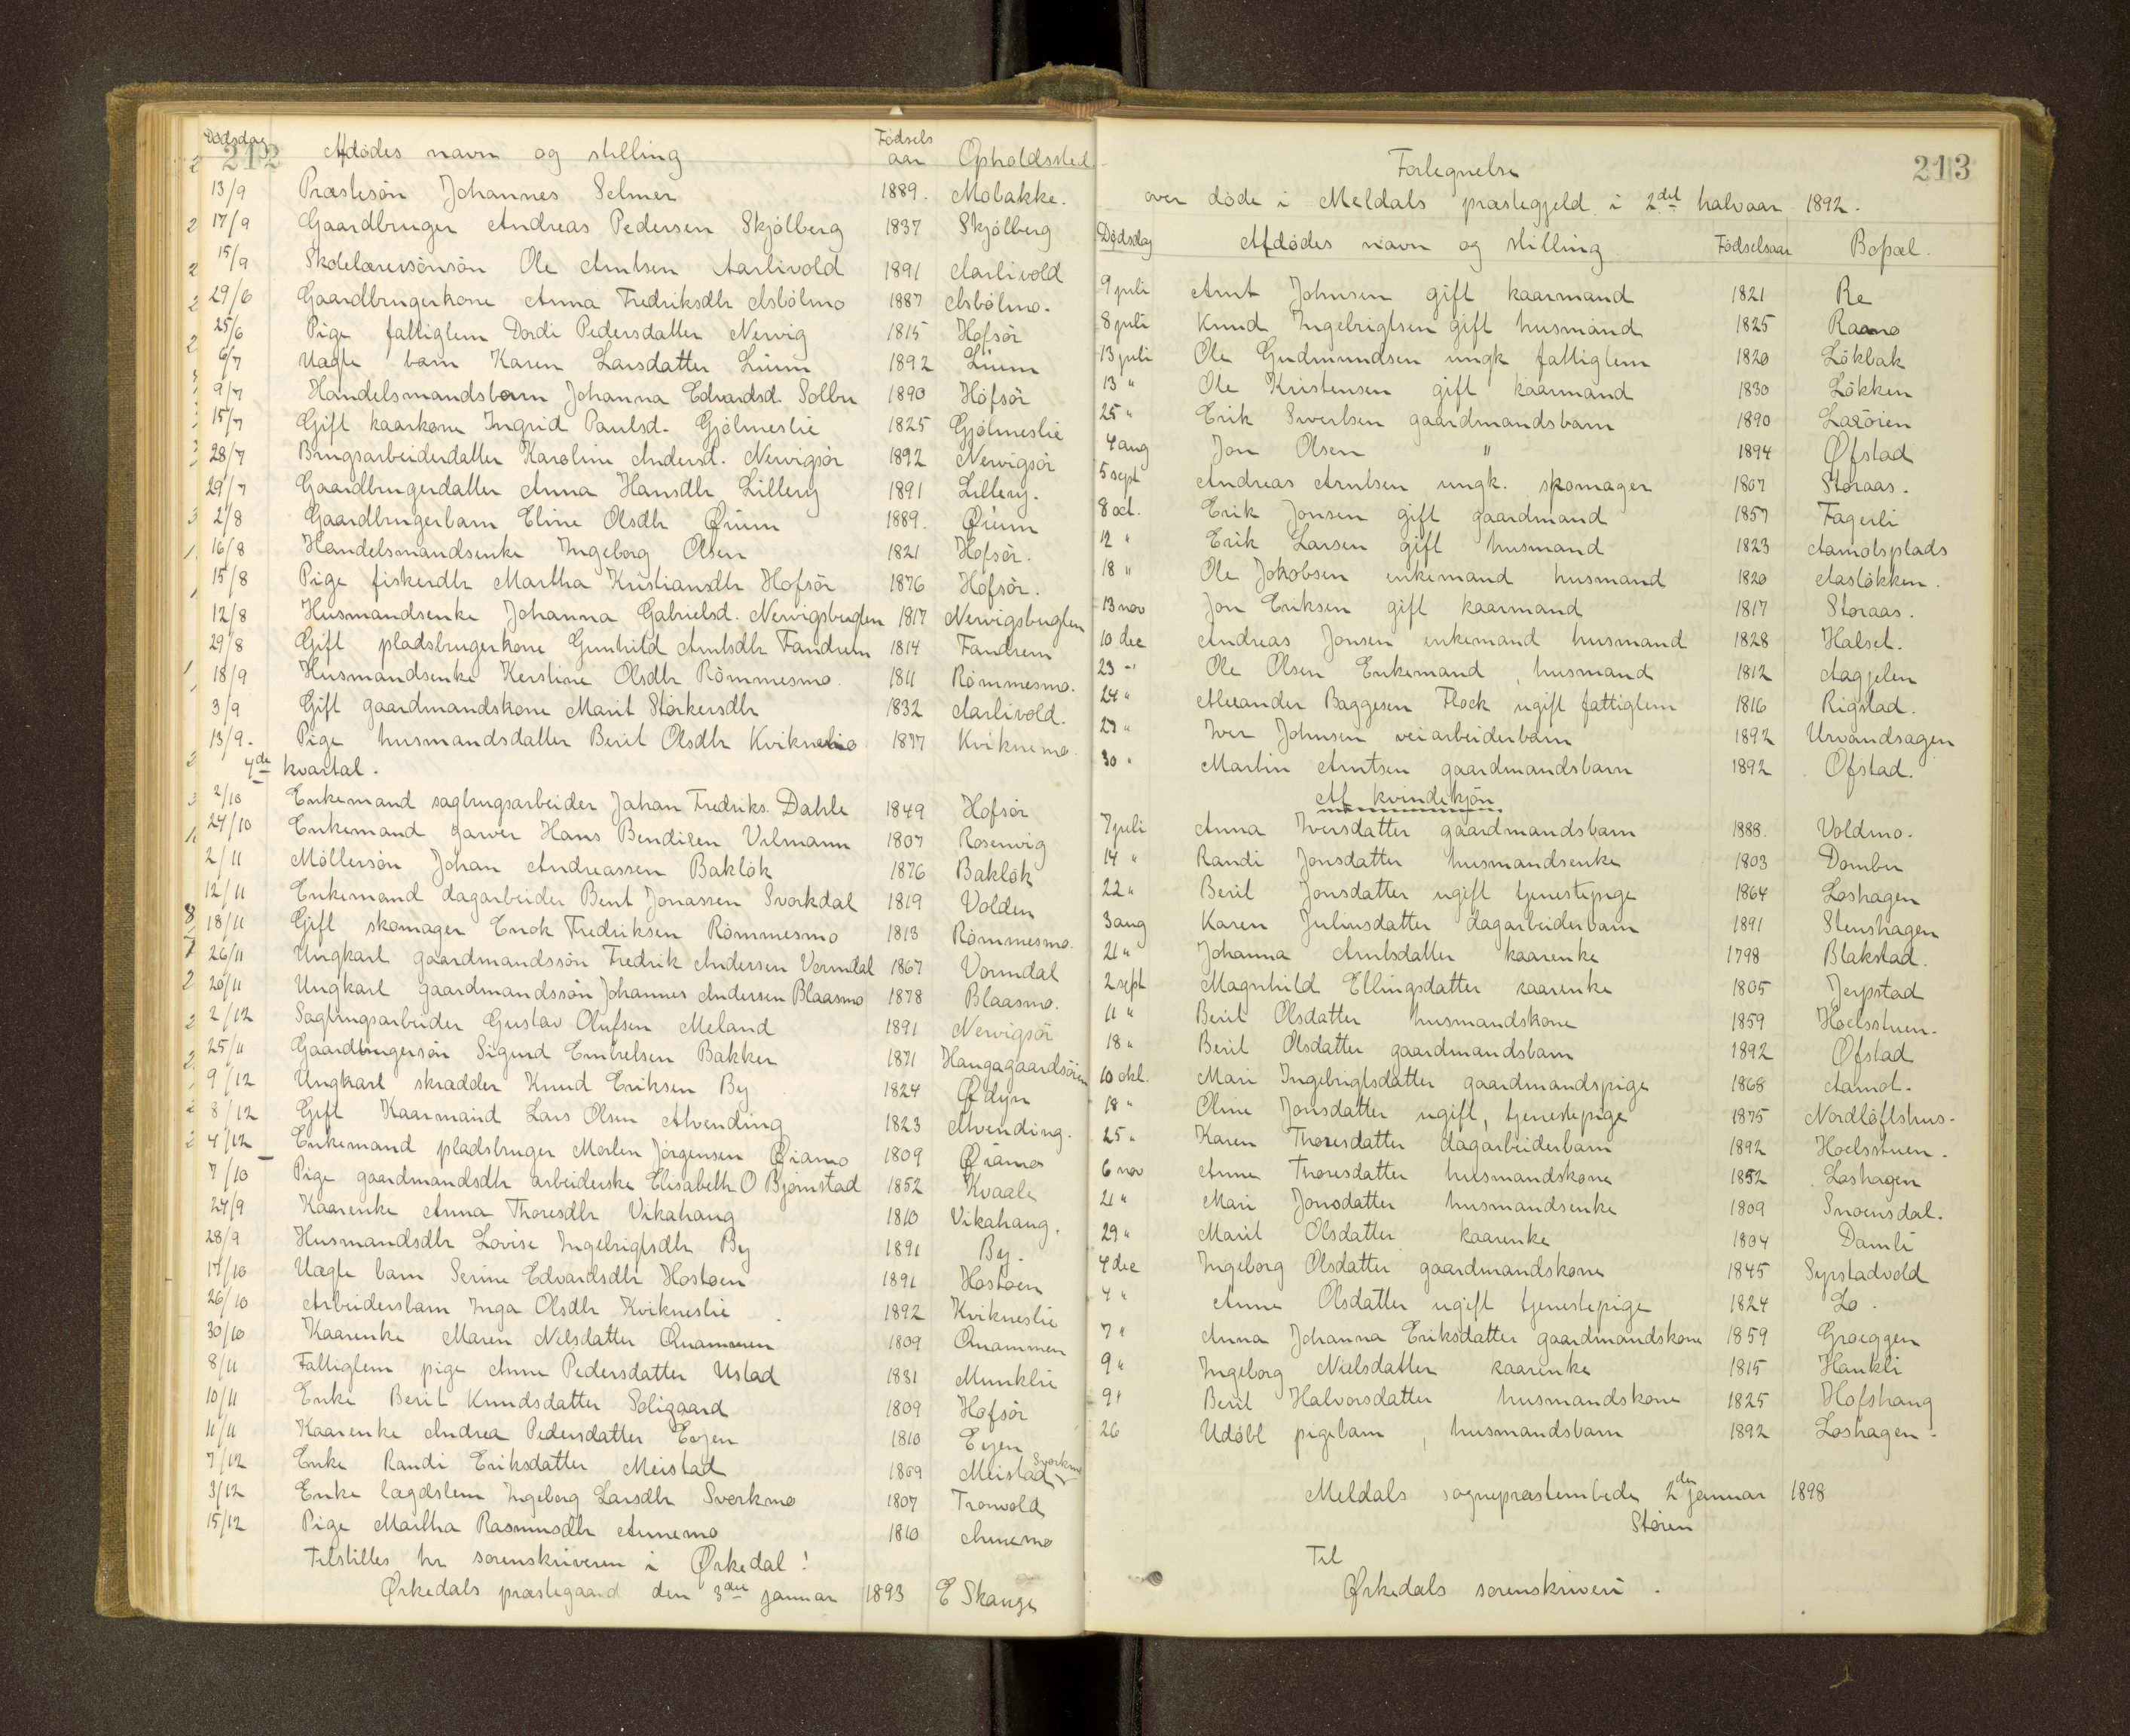 212
Dødsdag Afdødes navn og stilling Fødsels aar Opholdssted
13/9 Præstesøn Johannes Selmer 1889. Mobakke.
17/9 Gaardbruger Andreas Pedersen Skjølberg 1837 Skjølberg
15/9 Skolelærersønsøn Ole Arntsen Aarlivold 1891 Aarlivold
29/6 Gaardbrugerkone Anna Fredriksdtr Asbølmo 1887 Asbølmo.
25/6 Pige fattiglem Dordi Pedersdatter Nervig 1815 Hofsör
6/7 Uægte barn Karen Larsdatter Lium 1892 Lium
9/7 Handelsmandsbarn Johanna Edvardsd. Solbu 1890 Hofsör
15/7 Gift kaarkone Ingrid Paulsd. Gjølmeslie 1825 Gjølmeslie
28/7 Brugsarbeiderdatter Karoline Andersd. Nervigsör 1892 Nervigsör
29/7 Gaardbrugerdatter Anna Hansdtr Lillery 1891 Lillery.
2/8 Gaardbrugerbarn Eline Olsdtr Øium 1889. Øium
16/8 Handelsmandsenke Ingeborg Olsen 1821 Hofsör.
15/8 Pige fiskerdtr Martha Kristiansdtr Hofsör 1876 Hofsör.
12/8 Husmandsenke Johanna Gabrielsd. Nervigsbugten 1817 Nervigsbugten
29/8 Gift pladsbrugerkone Gunhild Arntsdtr Fandrem 1814 Fandrem
18/9 Husmandsenke Kerstine Olsdtr Römmesmo. 1811 Römmesmo.
3/9 Gift gaardmandskone Marit Storkersdtr 1832 Aarlivold.
13/9. Pige husmandsdatter Berit Olsdtr 1877 Kviknemo
4de kvartal.
2/10 Enkemand sagbrugsarbeider Johan Fredriks. Dahle 1849 Hofsör
24/10 Enkemand garver Hans Bendixen Vilmann 1807 Rosenvig
2/11 Möllersön Johan Andreassen Baklök 1876 Baklök
12/11 Enkemand dagarbeider Bent Jonassen Svorkdal 1819 Volden
18/11 Gift skomager Enok Fredriksen Römmesmo 1813 Römmesmo.
26/11 Ungkarl gaardmandssön Fredrik Andersen Vormdal 1867 Vormdal
20/11 Ungkarl gaardmandssön Johannes Andersen Blaasmo 1878 Blaasmo.
2/12 Sagbrugsarbeider Gustav Olufsen Meland 1891 Nervigsör
25/11 Gaardbrugersön Sigurd Embretsen Bakken 1871 Haugagaardsören
9/12 Ungkarl skrædder Knud Eriksen By 1824 Ødyn
8/12 Gift Kaarmand Lars Olsen Alvending 1823 Alvending.
4/12 Enkemand pladsbruger Morten Jörgensen Øiamo 1809 Øiamo
7/10 Pige gaardmandsdtr arbeiderske Elisabeth O Bjørnstad 1852 Kvaale
24/9 Kaarenke Anna Thoresdtr Vikahaug 1810 Vikahaug.
28/9 Husmandsdtr Lovise Ingebrigtsdtr By 1891 By.
17/10 Uægte barn Serine Edvardsdtr Hostoen 1891 Hostoen
26/10 Arbeidersbarn Inga Olsdtr Kvikneslie 1892 Kvikneslie
30/10 Kaarenke Maren Nilsdatter Qnammen 1809 Qnammen
8/11 Fattiglem pige Anne Pedersdatter Ustad 1831 Munklie
10/11 Enke Berit Knudsdatter Soligaard 1809 Hofsör
11/11 Kaarenke Andrea Pedersdatter Evjen 1810 Evjen
7/12 Enke Randi Eriksdatter Meistad 1809 Meistad Svorkmo
3/12 Enke lægdslem Ingeborg Larsdtr Svorkmo 1807 Tronvold
15/12 Pige Martha Rasmusdtr Annemo 1810 Annemo
Tilstilles hr sorenskriveren i Ørkedal!
Ørkedals præstegaard den 3die januar 1893 E Skauge
213
Fortegnelse
over døde i Meldals præstegjeld i 2det halvaar 1892.
Dødsdag Afdødes navn og stilling Fødselsaar Bopæl.
9 juli Arnt Johnsen gift kaarmand 1821 Re
8 juli Knud Ingebrigtsen gift husmand 1825 Raamo
13 juli Ole Gudmundsen ungk fattiglem 1820 Lökbak
13 " Ole Kristensen gift kaarmand 1830 Lökken
25 " Erik Sivertsen gaardmandsbarn 1890
4 aug Jon Olsen " 1894 Øfstad
5 sept Andreas Arntsen ungk. skomager 1807 Storaas.
8 oct. Erik Jonsen gift gaardmand 1857 Fagerli
12 " Erik Larsen gift husmand 1823 Aamotsplads
18 " Ole Jakobsen enkemand husmand 1820 Aaslökken.
13 nov Jon Eriksen gift kaarmand 1817 Storaas.
10 dec Andreas Jonsen enkemand husmand 1828 Halset.
23 " Ole Olsen Enkemand, husmand 1812 Aagjelen
24 " Alexander Baggesen Flock ugift fattiglem 1816 Rigstad.
29 " Iver Johnsen veiarbeiderbarn 1892 Urvandsagen
30 " Martin Arntsen gaardmandsbarn 1892 Øfstad.
Af kvindekjön
7 juli Anna Iversdatter gaardmandsbarn 1888. Voldmo.
14 " Randi Jonsdatter husmandsenke 1803 Dombu
22 " Berit Jonsdatter ugift tjenestepige 1864 Loshagen
3 aug Karen Juliusdatter dagarbeiderbarn 1891 Stenshagen
21 " Johanna Arntsdatter kaarenke 1798 Blakstad.
2 sept Magnhild Ellingsdatter kaarenke 1805 Jerpstad
11 " Berit Olsdatter husmandskone 1859 Hoelsstuen.
18 " Berit Olsdatter gaardmandsbarn 1892 Øfstad
10 okt. Mari Ingebrigtsdatter gaardmandspige 1868 Aamot.
18 " Oline Jonsdatter ugift, tjenestepige 1875 Nordlöftshus.
25 " Karen Thoresdatter dagarbeiderbarn 1892 Hoelsstuen.
6 nov Anne Thoresdatter husmandskone 1852 Loshagen
21 " Mari Jonsdatter husmandsenke 1809 Snoensdal.
29 " Marit Olsdatter kaarenke 1804 Damli
4 dec Ingeborg Olsdatter gaardmandskone 1845 Syrstadvold
4 " Anne Olsdatter ugift tjenestepige 1824 Lo.
7 " Anna Johanna Eriksdatter gaardmandskone 1859 Groeggen
9 " Ingeborg Nielsdatter kaarenke 1815 Haukli
9 " Berit Halvorsdatter husmandskone 1825 Hofshaug
26 Udöbt pigebarn, husmandsbarn 1892 Loshagen.
Meldals sognepræstembede 2den januar 1898
Støren
Til
Ørkedals sorenskriveri.